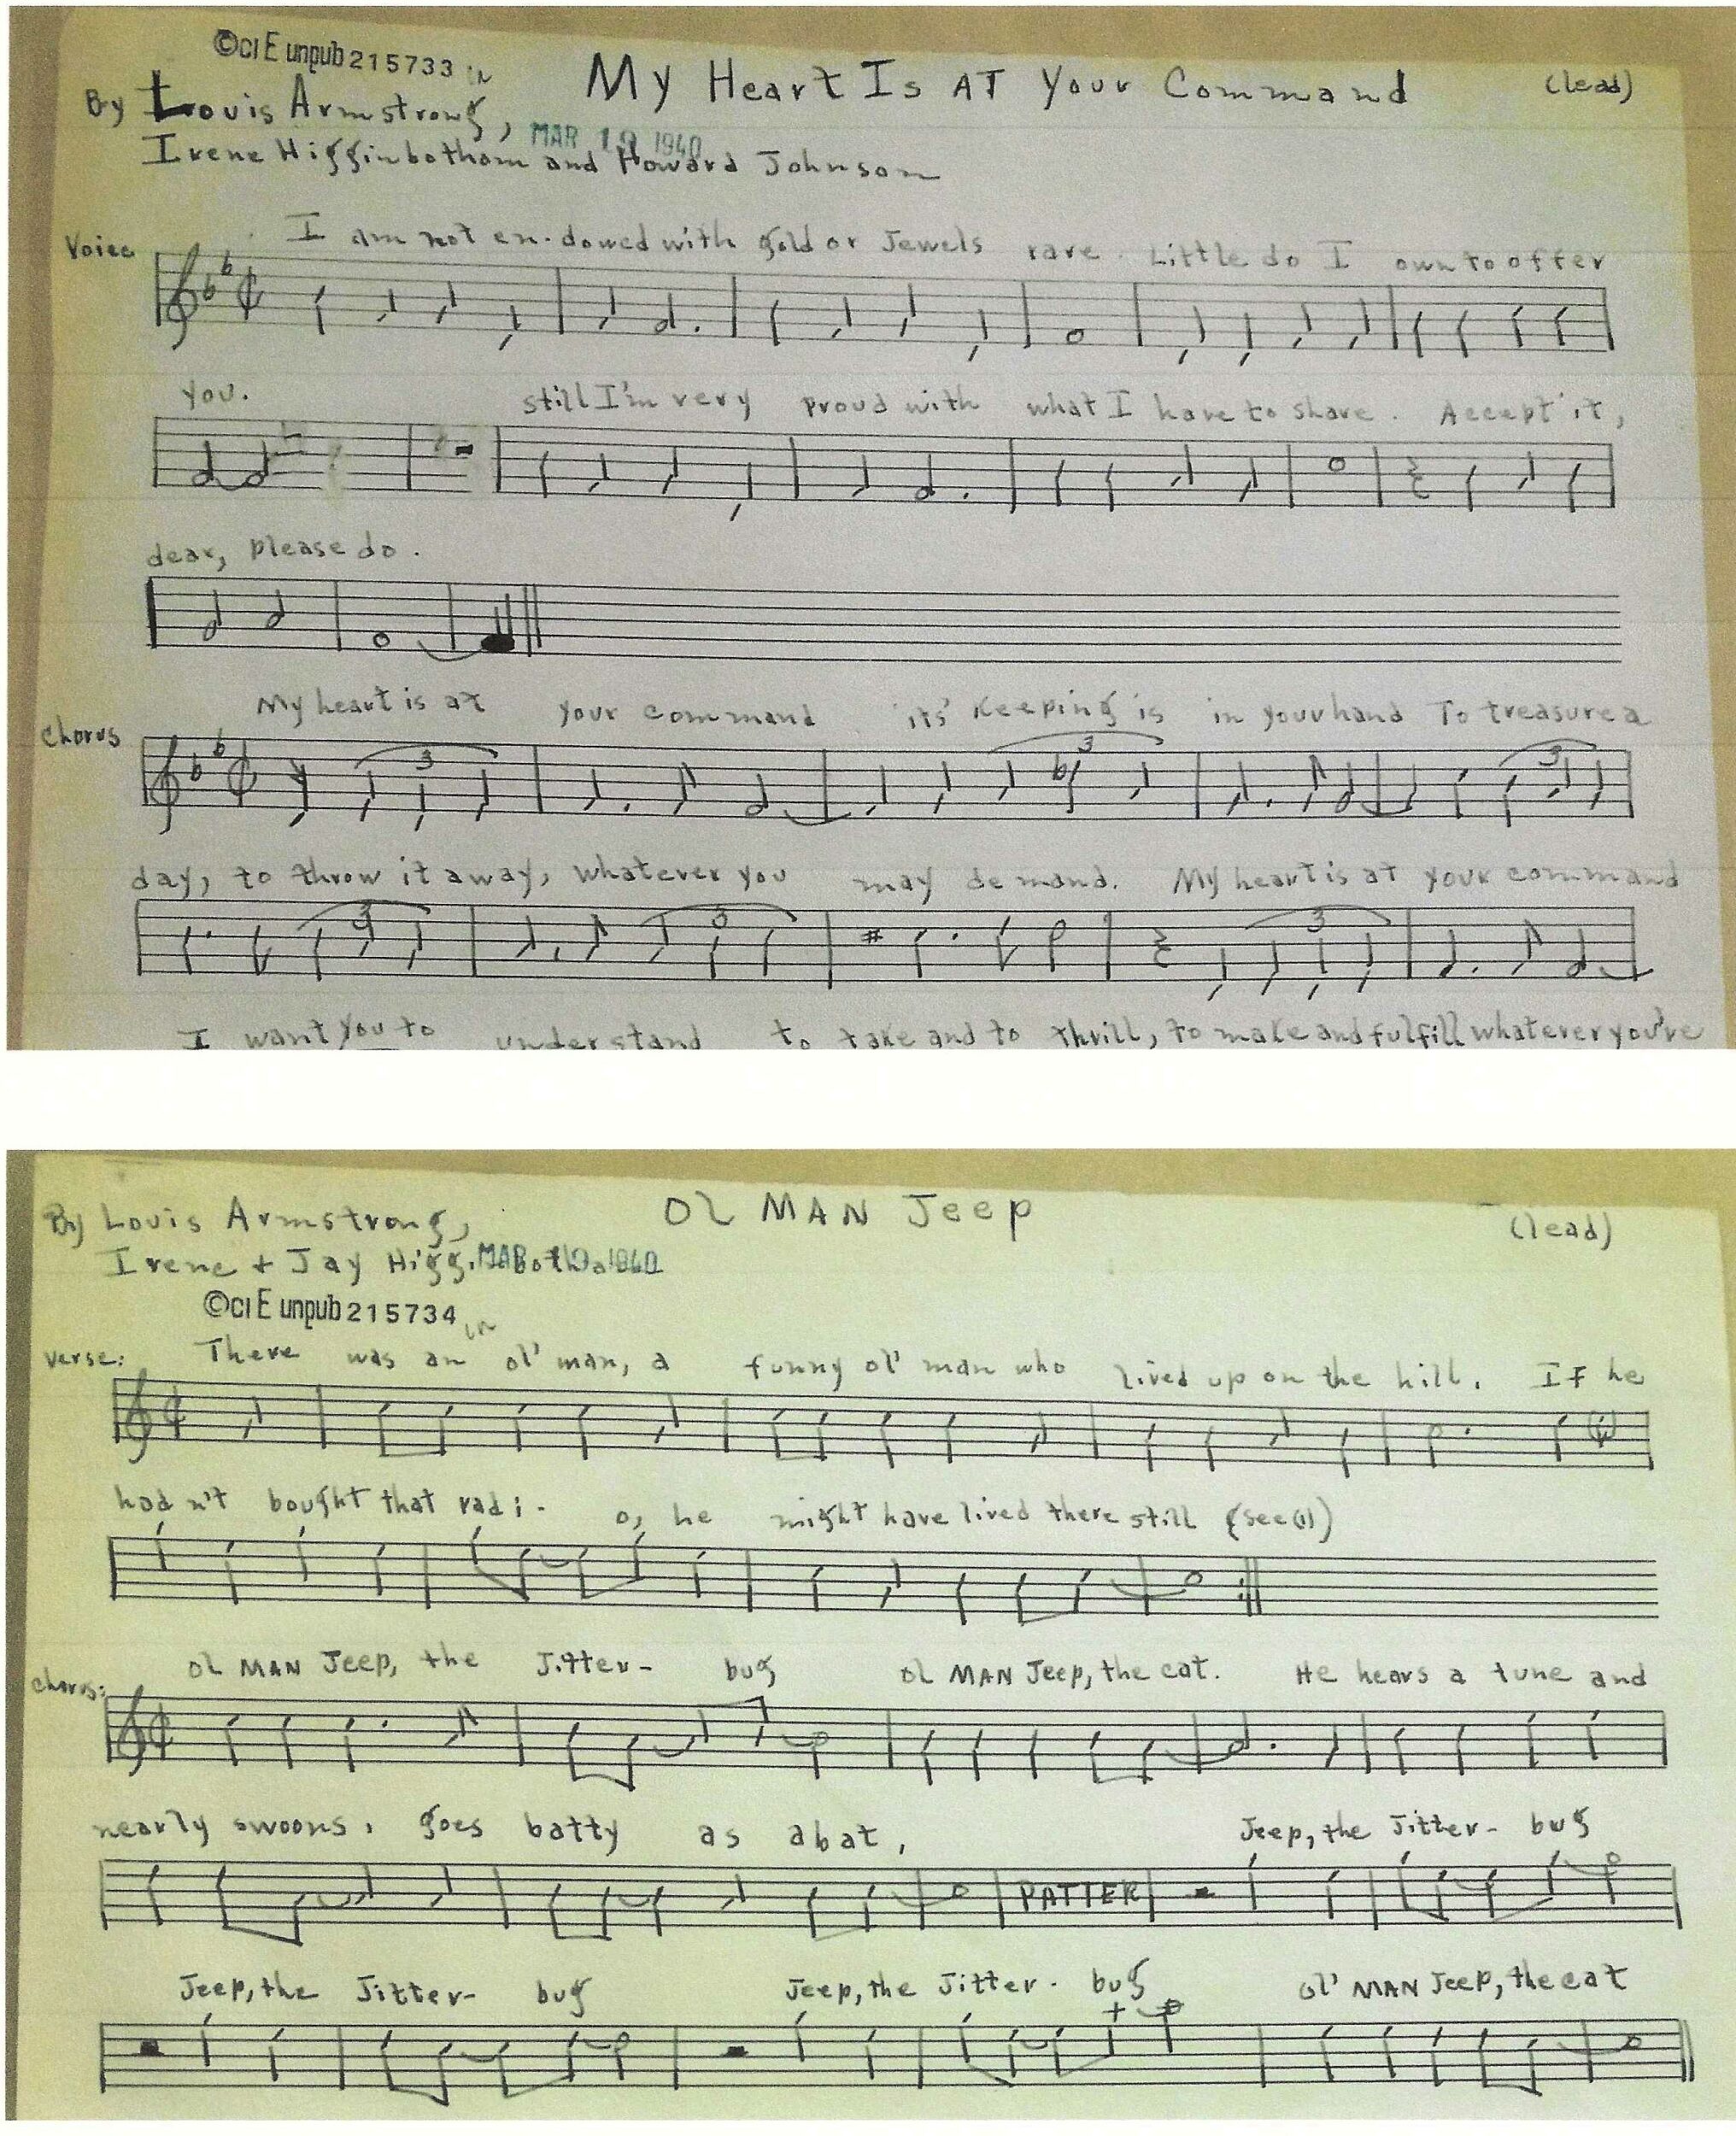 ©CI E unpub 215733
My Heart Is AT Your Command
(lead)
By Louis Armstrong,
MAR 19 1940
Irene Higginbotham and Howard Johnson
Voice
I am not en-dowed with gold or Jewels rare. Little do I own to offer
you. still I'm very proud with what I have to share. Accept it,
dear, please do.
Chorus
My heart is at your command its' keeping is in your hand To treasure a
3 3 3
day, to throw it away, whatever you may demand. My heart is at your command
3 3 3
I want you to understand to take and to thrill, to make and fulfill whatever you're
OL MAN Jeep
(lead)
By Louis Armstrong,
Irene + Jay
©CI E unpub 215734
Verse: There was an ol' man, a funny ol' man who lived up on the hill. If he
hadn't bought that radi- o, he might have lived there still (see (1))
Chorus: Ol MAN Jeep, the Jitter- bug Ol MAN Jeep, the cat. He hears a tune and
nearly swoons, goes batty as a bat, Jeep, the Jitter- bug
PATTER
Jeep, the Jitter- bug Jeep, the Jitter- bug Ol' MAN Jeep, the cat